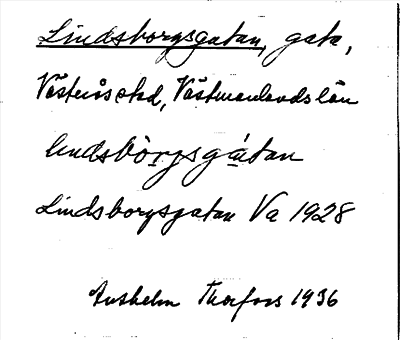 Lindsborgsgatan, gata,
Västerås stad, Västmanlands län
lindsbòrjsgàtan
Lindsborgsgatan Va 1928
Thorfors 1936